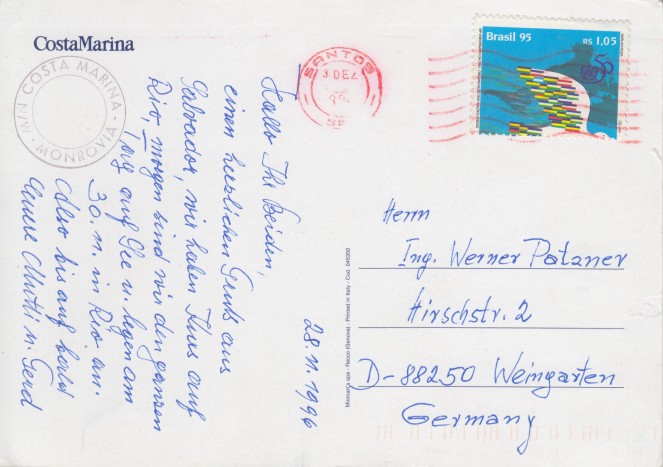 CostaMarina
M/N COSTA MARINA
- MONROVIA -
SANTOS
3 DEZ
SP
Brasil 95
R$ 1,05
50
28.11.1996
Hallo Ihr Beiden,
einen herzlichen Gruß aus
Salvador, wir haben Kurs auf
Rio, morgen sind wir den ganzen
Tag auf See u. legen am
30.11. in Rio an.
Also bis auf bald
Mutti u. Gerd
Microser's spa - Recco (Genova) - Printed in Italy - Cod. 040350
Herrn
Ing. Werner Patzner
Hirschstr. 2
D-88250 Weingarten
Germany